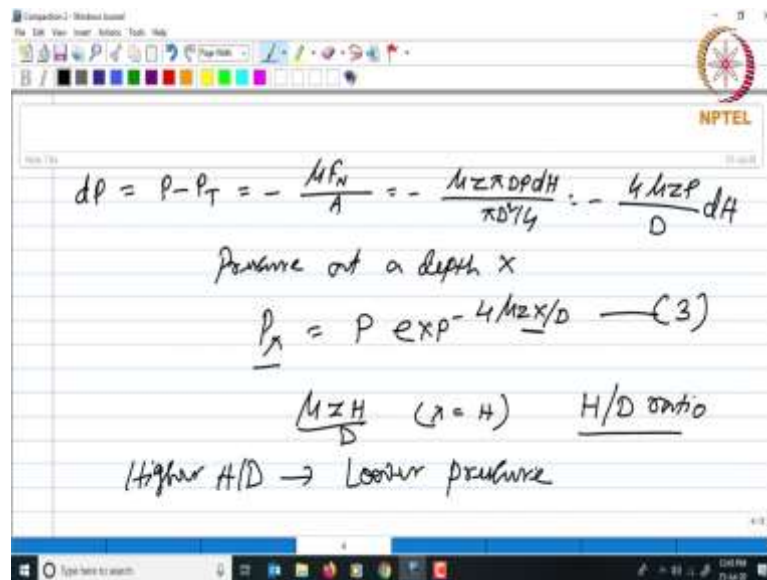 Compaction 2 - Windows Journal
File Edit View Insert Actions Tools Help
Page Width
B I
NPTEL
dP = P-P_T = - μF_N/A = - μzπDPdH/πD²/4 = - 4μzP/D dH
Pressure at a depth x
P_x = P exp^-4μzx/D —(3)
μzH/D (x = H) H/D ratio
Higher H/D → Lower pressure
Type here to search